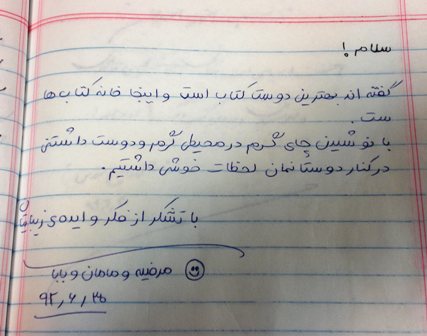 سلام !
گفته اند بهترین دوست کتاب است و اینجا خانه کتاب ها
ست .
با نوشیدن چای گرم در محیطی گرم و دوست داشتنی
در کنار دوستانمان لحظات خوشی داشتیم .
با تشکر از فکر و ایده ی زیباتان
مرضیه و مامان و بابا